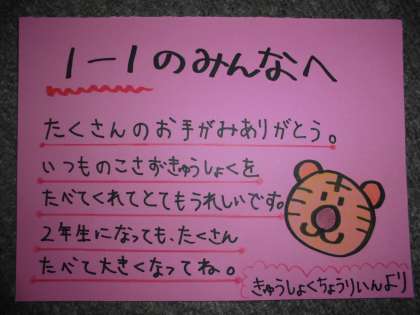 1-1のみんなへ
たくさんのお手がみありがとう。
いつものこさずきゅうしょくを
たべてくれてとてもうれしいです。
2年生になっても、たくさん
たべて大きくなってね。
きゅうしょくちょうりいんより